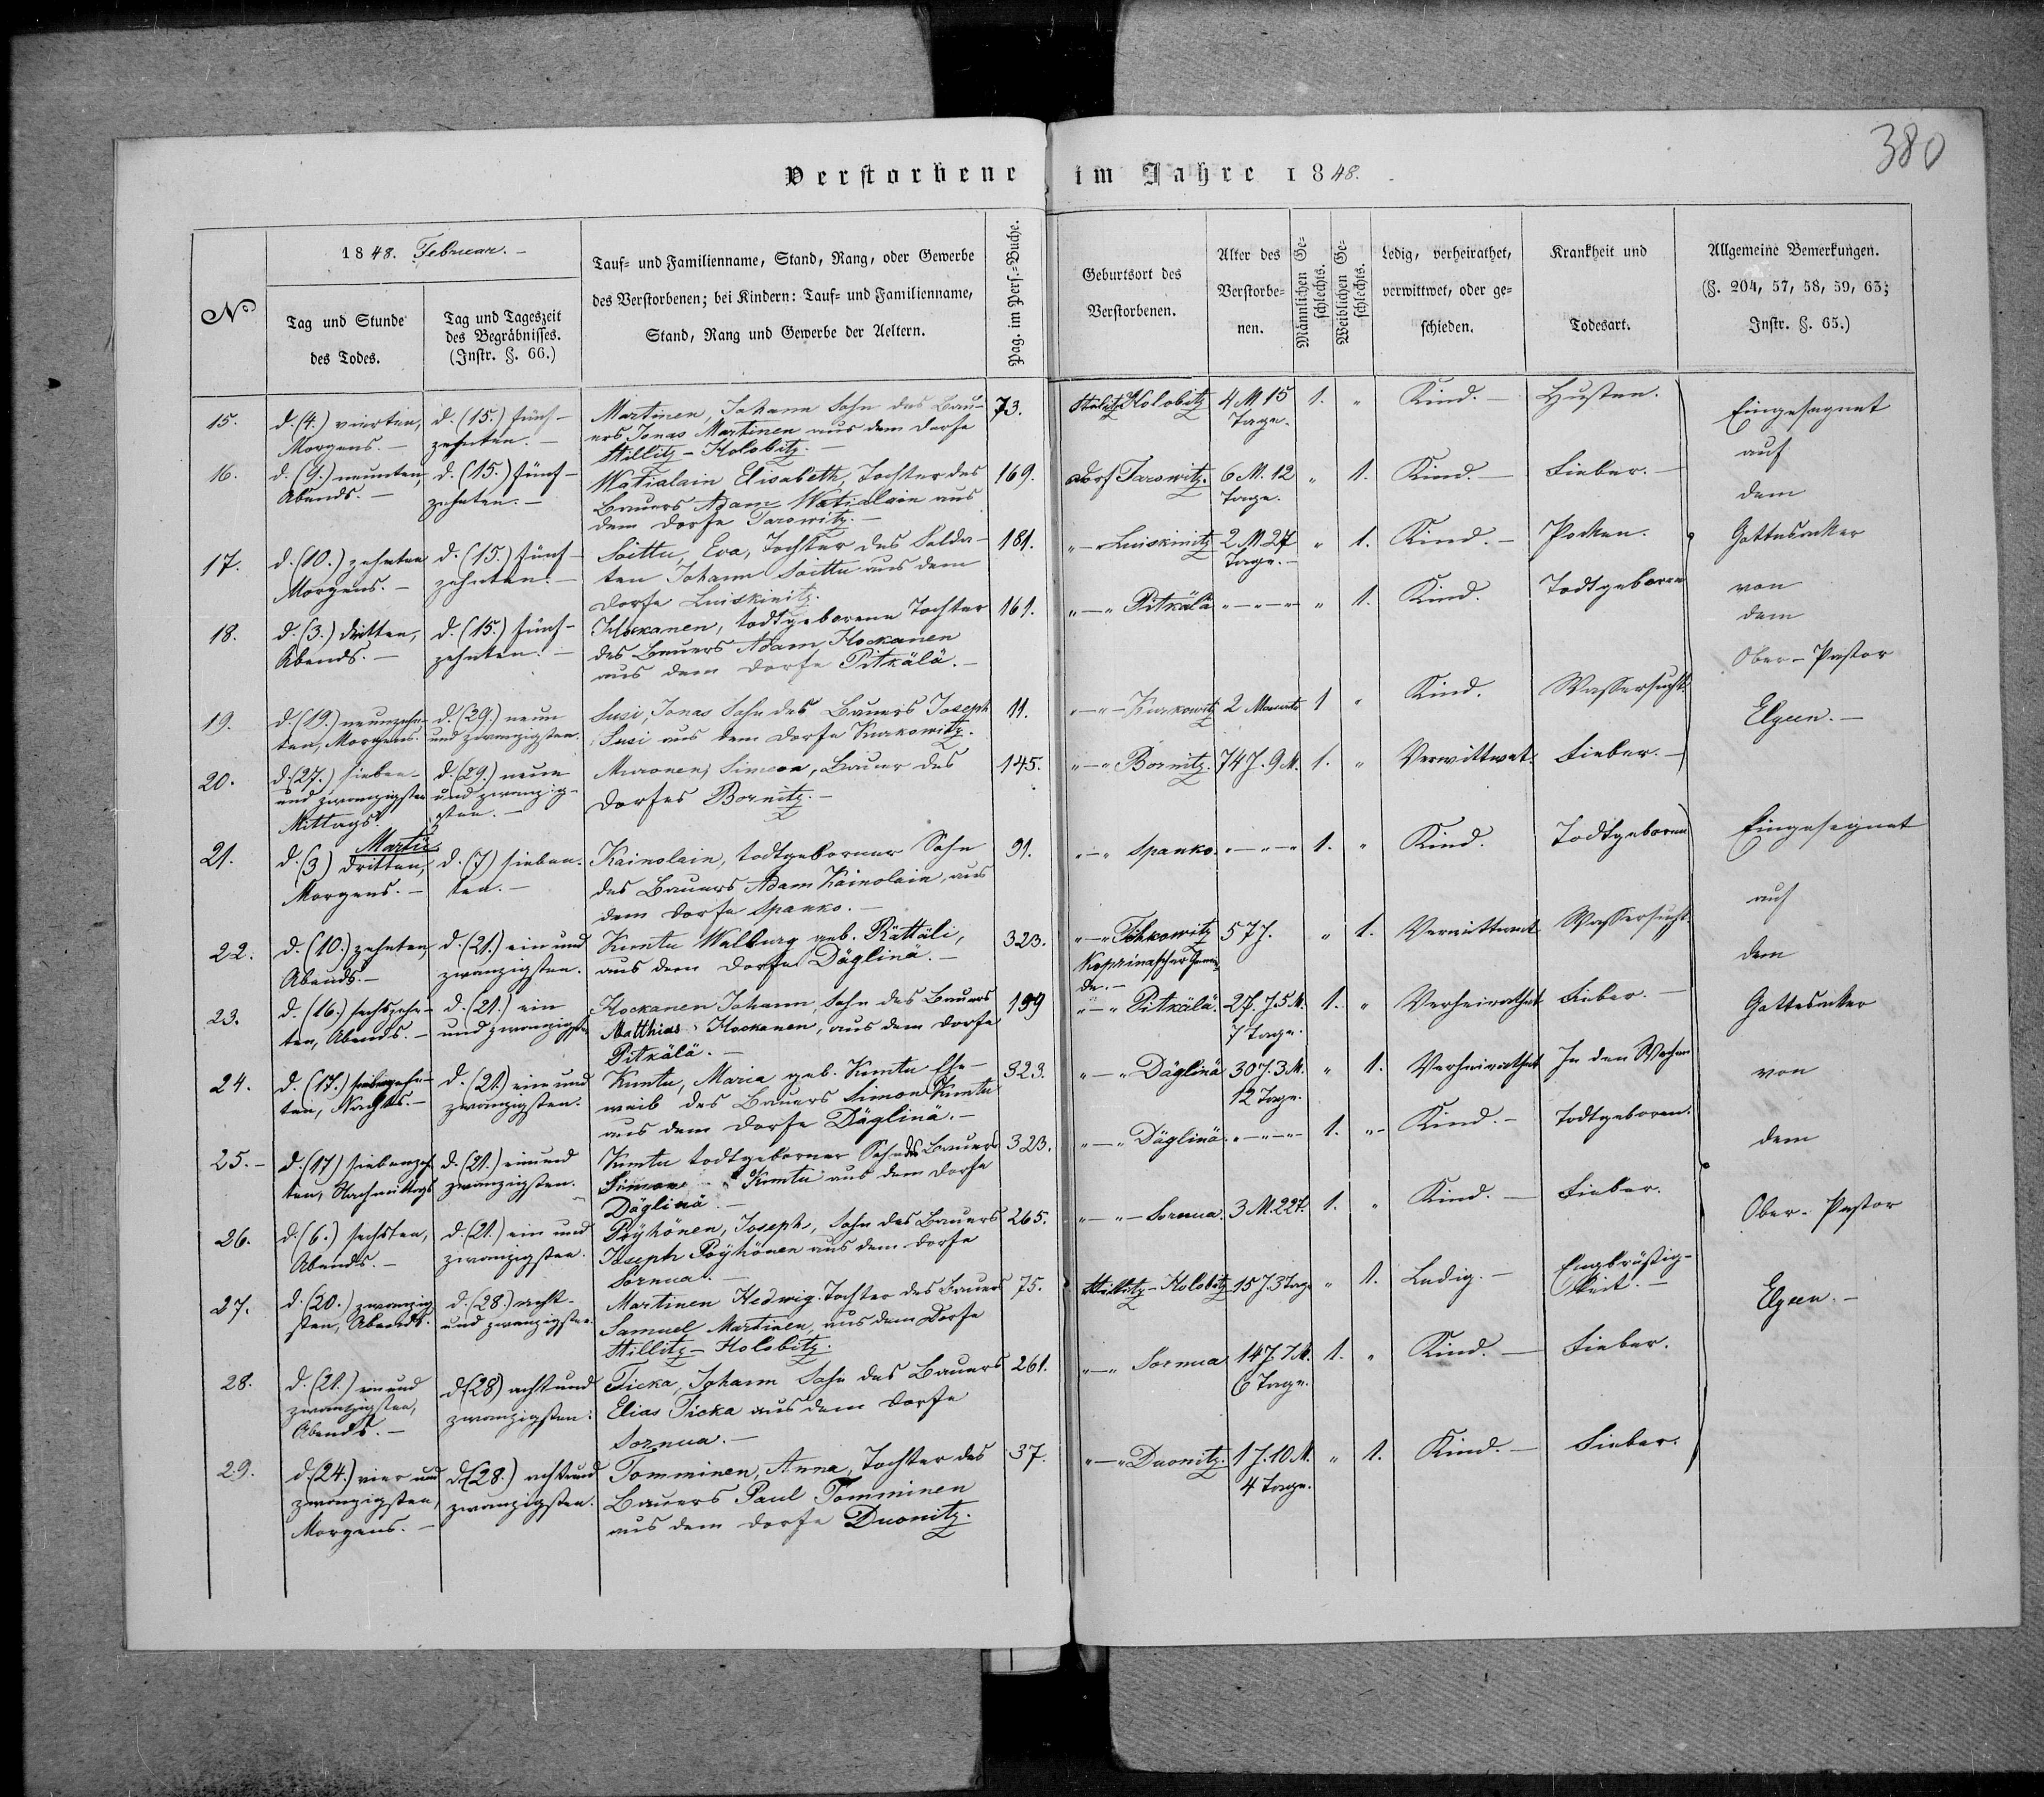 380
Verstorbene im Jahre 1848.
№
1848. Februar. –
Tag und Stunde des Todes.
Tag und Tageszeit des Begräbnisses. (Instr. §. 66.)
Tauf- und Familienname, Stand, Rang, oder Gewerbe
des Verstorbenen; bei Kindern: Tauf- und Familienname,
Stand, Rang und Gewerbe der Aeltern.
Pag. im Pers.-Buche.
Geburtsort des Verstorbenen.
Alter des Verstorbe-nen.
Männlichen Ge-schlechts.
Weiblichen Ge-schlechts.
Ledig, verheirathet, verwittwet, oder ge-schieden.
Krankheit und Todesart.
Allgemeine Bemerkungen. (§. 204, 57, 58, 59, 63; Instr. §. 65.)
15. d. (4.) vierten, d. (15.) fünf- Martinen, Johann Sohn des Bau- 73. Holobitz 4 M 15 1. " Kind. – Husten.
Morgens. – zehnten. – ers Jonas Martinen aus dem Dorfe Tage.
Hillitz – Holobitz.
16. d. (9.) neunten, d. (15.) fünf- Watialain Elisabeth, Tochter des 169. Dorf Tarowitz. 6 M. 12 " 1. Kind. – Fieber. –
Abends. – zehnten. – Bauers Adam Watialain aus Tage.
dem Dorfe Tarowitz. –
17. d. (10.) zehnten d. (15.) fünf- Soittu, Eva, Tochter des Solda- 181. " – " Luiskinitz 2 M. 27 " 1. Kind. – Pocken.
Morgens. – zehnten. – ten Johann Soittu aus dem Tage. –
Dorfe Luiskinitz.
18. d. (3.) dritten, d. (15.) fünf- Hockanen, todtgeborene Tochter 161. " – " Pitkälä " – " – " " 1. Kind. Todtgeboren
Abends. – zehnten. – des Bauers Adam Hockanen
aus dem Dorfe Pitkälä. –
19. d. (19.) neunzehn- d. (29.) neun Susi, Jonas Sohn des Bauers Joseph 11. " – " – Kurkowitz 2 Monate 1 " Kind. Wassersucht.
ten, Morgens. und zwanzigsten. Susi aus dem Dorfe Kurkowitz.
20. d. (27.) sieben- d. (29.) neun Muronen, Simeon, Bauer des 145. " – " Bornitz. 74 J. 9 M. 1. " Verwittwet. Fieber. –
und zwanzigsten und zwanzig- Dorfes Bornitz. –
Mittags. sten. –
Eingesegnet
auf
dem
Gottesacker
von
dem
Ober-Pastor
Elgeen. –
Martii
21. d. (3) dritten, d. (7) sieben- Kainolain, todtgeborner Sohn 91. " – " Spanko. " – " – " 1. " Kind. Todtgeboren
Morgens. – ten. – des Bauers Adam Kainolain, aus
dem Dorfe Spanko. –
22. d. (10.) zehnten, d. (21.) ein und Kuntu Walburg geb. Rättäli, 323. " – " Tihkowitz 57 J. " 1. Verwittwet Wassersucht
Abends. – zwanzigsten. aus dem Dorfe Däglinä. – Koprinascher Gemein
de. –
23. d. (16.) sechszehn- d. (21.) ein Hockanen Johann, Sohn des Bauers 159 " – " Pitkälä. 27. J. 5 M. 1. " Verheirathet Fieber. –
ten, Abends. – und zwanzigsten Matthias Hockanen, aus dem Dorfe 7 Tage.
Pitkälä. –
24. d. (17.) siebenzehn- d. (21.) ein und Kuntu, Maria geb. Kuntu Ehe- 323. " – " Däglinä 30 J. 3 M. " 1. Verheirathet In den Wochen
ten, Nachts. – zwanzigsten. weib des Bauers Simon Kuntu 12 Tage.
aus dem Dorfe Däglinä. –
25. – d. (17) siebenzehn d. (21.) ein und Kuntu todtgeborner Sohn des Bauers 323. " – " Däglinä. " – " – " 1. " – Kind. – Todtgeboren.
ten, Nachmittags zwanzigsten. Simon Kuntu aus dem Dorfe
Däglinä. –
26. d. (6.) sechsten, d. (21.) ein und Pöyhönen, Joseph, Sohn des Bauers 265. " – " – Sornua. 3 M. 22 T. 1. " Kind. – Fieber.
Abends. – zwanzigsten. Joseph Pöyhönen aus dem Dorfe
Sornua. –
27. d. (20.) zwanzig d. (28.) acht- Martinen Hedwig. Tochter des Bauers 75. Hillitz – Holobitz 15 J. 3 Tage " 1. Ledig. – Engbrüstig-
sten, Abends. und zwanzigsten Samuel Martinen, aus dem Dorfe keit. –
Hillitz – Holobitz.
28. d. (21.) ein und d. (28) acht und Ticka, Johann Sohn des Bauers 261. " – " Sornua 14 J. 7 M. 1. " Kind. – Fieber.
zwanzigsten, zwanzigsten. Elias Ticka aus dem Dorfe 6 Tage.
Abends. – Sornua. –
29. d. (24.) vier und d. (28.) acht und Tomminen, Anna, Tochter des 37. " – " Duonitz. 1 J. 10 M. " 1. Kind. – Fieber.
zwanzigsten, zwanzigsten. Bauers Paul Tomminen 4 Tage.
Morgens. – aus dem Dorfe Duonitz.
Eingesegnet
auf
dem
Gottesacker
von
dem
Ober-Pastor
Elgeen. –